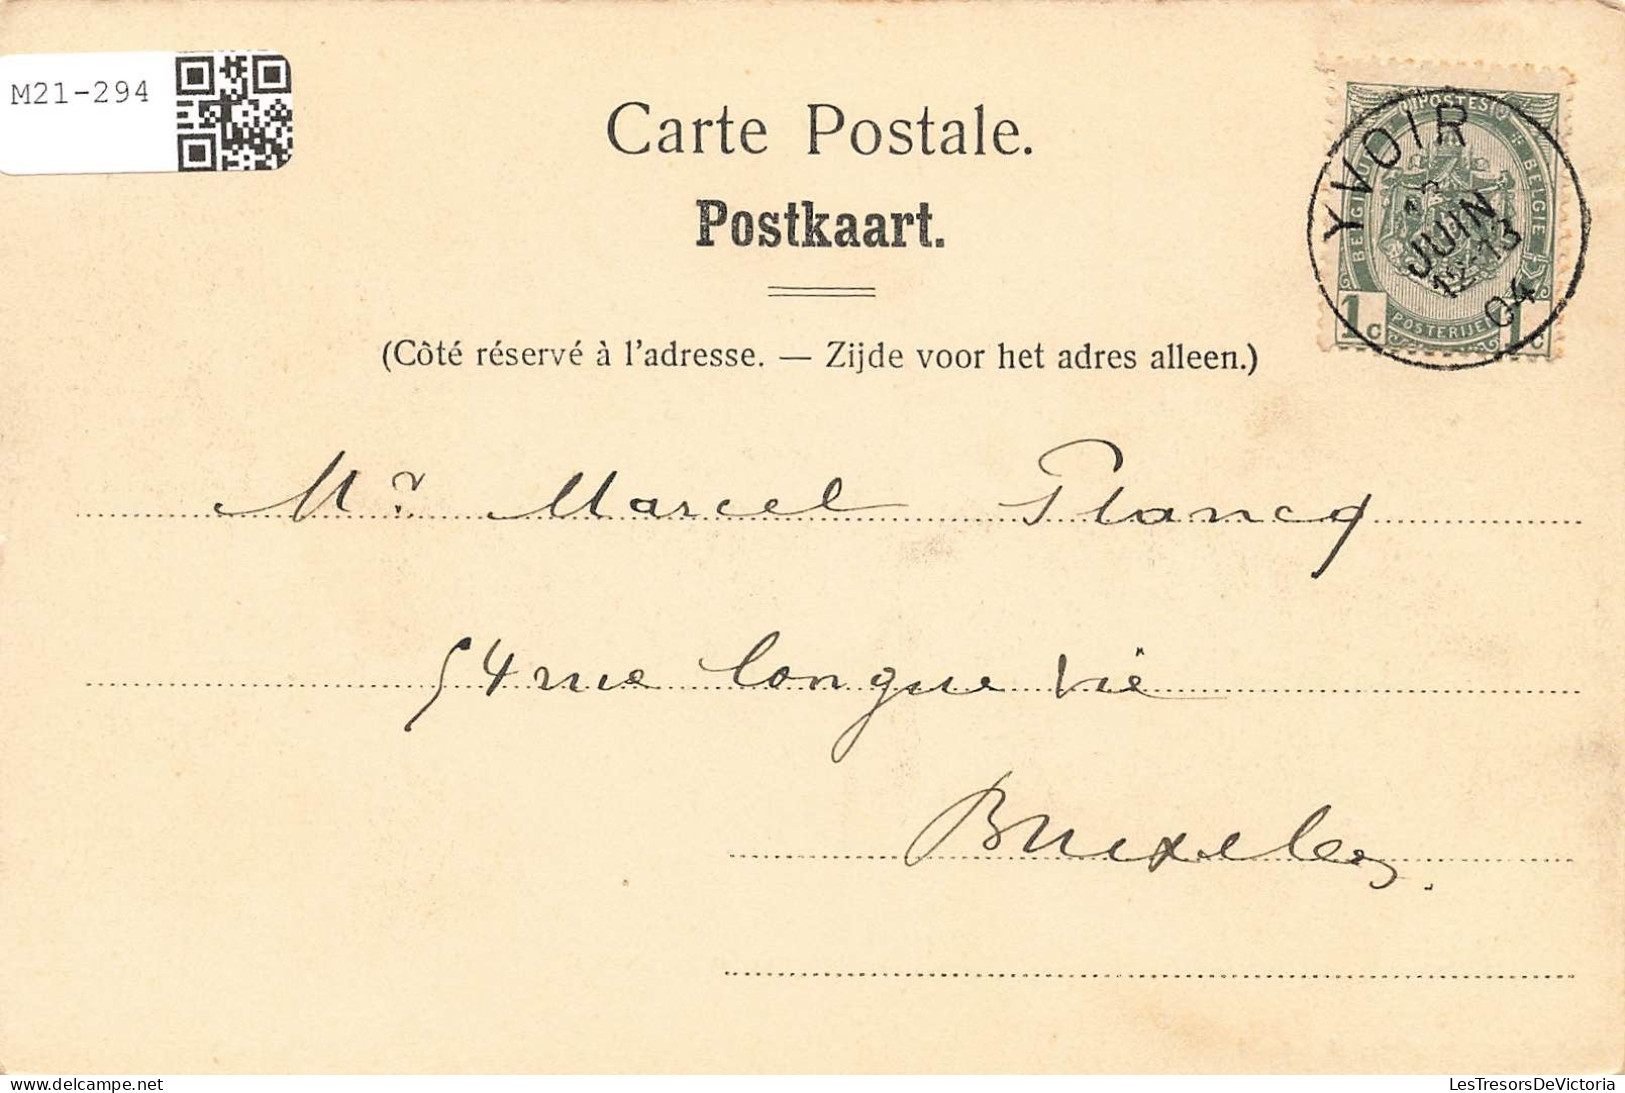 M21-294
Carte Postale.
Postkaart.
(Côté réservé à l'adresse. — Zijde voor het adres alleen.)
POSTES
BELGIË
POSTERIJEN
1c 1c
YVOIR
JUIN
12-13
04
Mr Marcel Plancq
54 rue longue vie
Bruxelles.
delcampe.net
LesTresorsDeVictoria